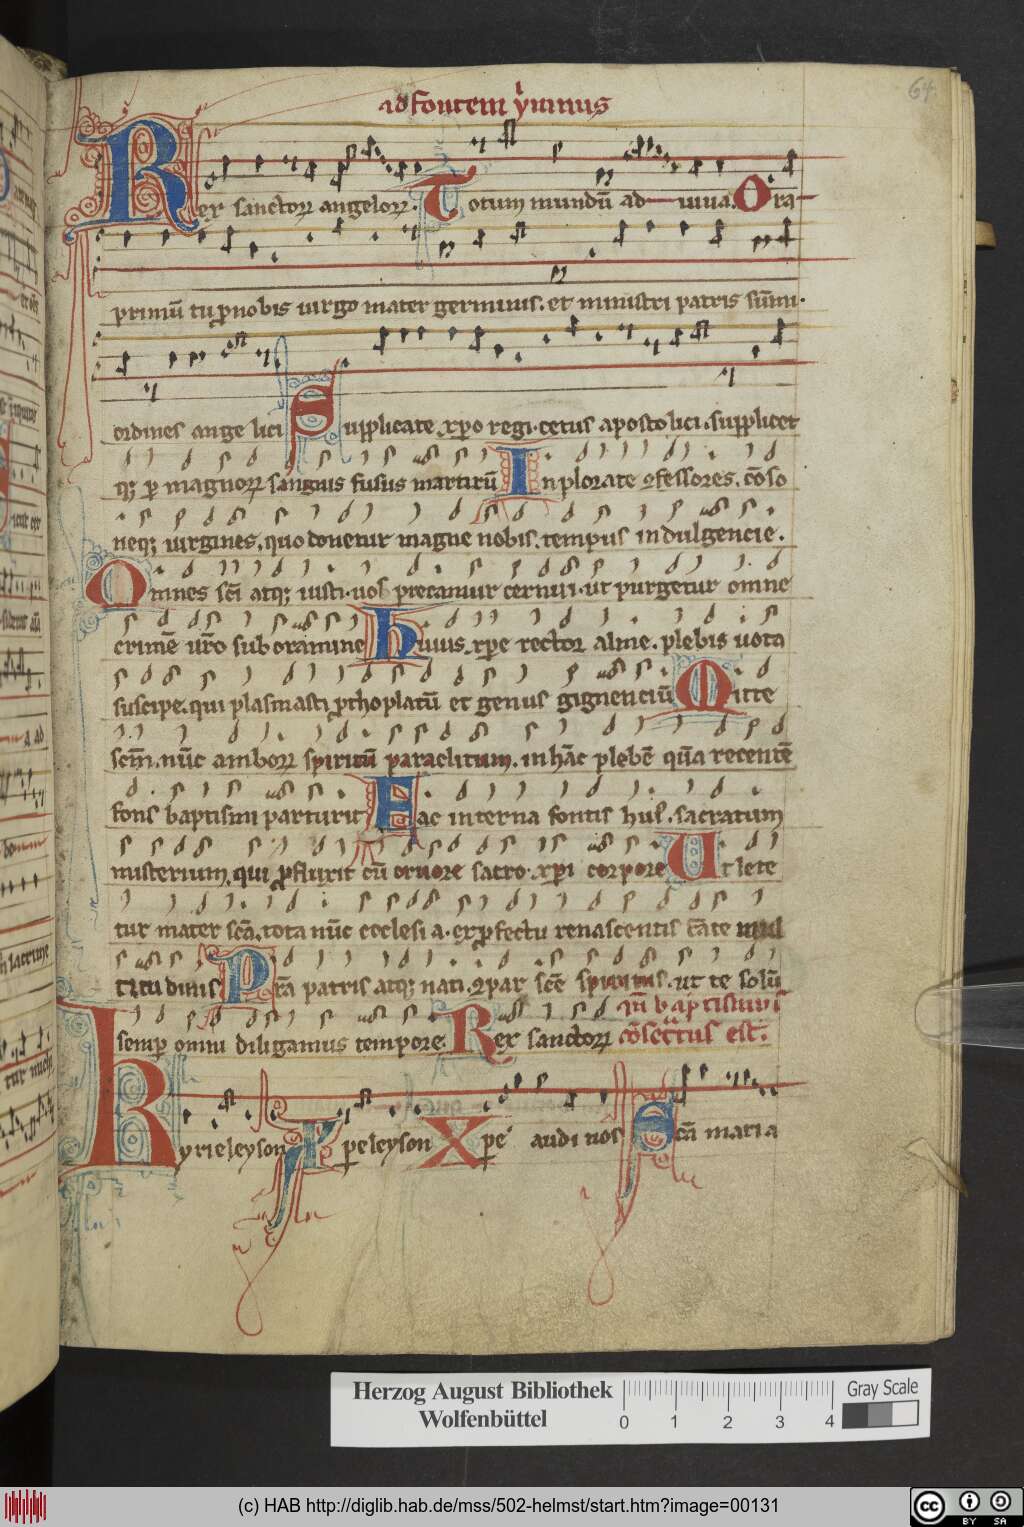 64
ad fontem ymnus
Rex sanctoꝝ angeloꝝ. Totum mundū ad iuua. Ora
primū tu ꝓ nobis uirgo mater germinis. et ministri patris sūmi.
ordines ange lici Supplicate xpo regi. cetus aposto lici. supplicet
qꝫ ꝑ magnoꝝ sanguis fusus martirū Inplorate ꝯfessores. cōso
neqꝫ uirgines. quo donetur magne nobis. tempus indulgencie.
Omnes sci atqꝫ iusti. uos precamur cernui. ut purgetur omne
crimē uro sub oramine Huius xpe rector alme. plebis uota
suscipe. qui plasmasti ꝓthoplatū et genus gignenciū Mitte
scm. nūc amboꝝ spiritū paraclitum. in hāc plebē quā recentē
fons baptismi parturit Fac interna fontis huiꝰ. sacratum
misterium. qui ꝓfluxit cū cruore sacro. xpi corpore Ut lete
tur mater scā. tota nūc ecclesi a. ex ꝓfectu renascentis tāte mul
titudinis Psta patris atqꝫ nati. ꝯpar scē spiritus. ut te solū
semꝑ omni diligamus tempore. Rex sanctoꝝ
qn baptismus
cōsecratus est.
Kyrieleyson Xpeleyson Xpe audi nos Sca maria
Herzog August Bibliothek
Wolfenbüttel
0 1 2 3 4
Gray Scale
(c) HAB http://diglib.hab.de/mss/502-helmst/start.htm?image=00131
cc BY SA